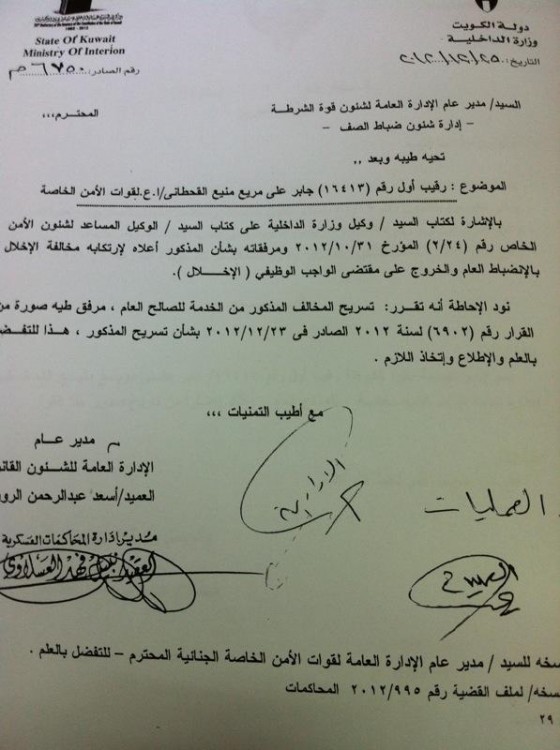 دولة الكويت
وزارة الداخلية
State Of Kuwait
Ministry Of Interion
التاريخ: ٢٠١٢/١٢/٢٥
رقم الصادر: ٦٧٥٠ م
السيد/ مدير عام الإدارة العامة لشئون قوة الشرطة
المحترم،،،
- إدارة شئون ضباط الصف -
تحيه طيبه وبعد ,,
الموضوع : رقيب أول رقم (١٦٤١٣) جابر على مريع منيع القحطانى/ا.ع.لقوات الأمن الخاصة
بالإشارة لكتاب السيد / وكيل وزارة الداخلية على كتاب السيد / الوكيل المساعد لشئون الأمن
الخاص رقم (٢/٢٤) المؤرخ ٢٠١٢/١٠/٣١ ومرفقاته بشأن المذكور أعلاه لإرتكابه مخالفة الإخلال
بالإنضباط العام والخروج على مقتضى الواجب الوظيفي ( الإخـــلال ).
نود الإحاطة أنه تقرر: تسريح المخالف المذكور من الخدمة للصالح العام ، مرفق طيه صورة من
القرار رقم (٦٩٠٢) لسنة ٢٠١٢ الصادر فى ٢٠١٢/١٢/٢٣ بشأن تسريح المذكور ، هذا للتفض
بالعلم والإطلاع وإتخاذ اللازم .
مع أطيب التمنيات ,,,
مدير عــام
الإدارة العامة للشئون القان
العميد/أسعد عبدالرحمن الروي
العمليات
مدير إدارة المحاكمات العسكرية
فهد العسلاوي
سخه للسيد / مدير عام الإدارة العامة لقوات الأمن الخاصة الجنائية المحترم – للتفضل بالعلم .
سخه/ لملف القضية رقم ٢٠١٢/٩٩٥ المحاكمات
٢٩